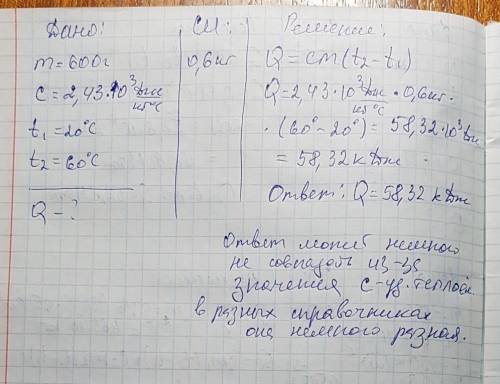 Дано:
m = 600г
c = 2,43·10³ Дж/кг°С
t₁ = 20°С
t₂ = 60°С
Q - ?
СИ:
0,6 кг
Решение:
Q = cm(t₂ - t₁)
Q = 2,43·10³ Дж/кг°С · 0,6кг·
·(60° - 20°) = 58,32·10³ Дж
= 58,32 кДж
Ответ: Q = 58,32 кДж
Ответ может немного
не совпадать из-за
значения с-уд. теплоём.
в разных справочниках
она немного разная.